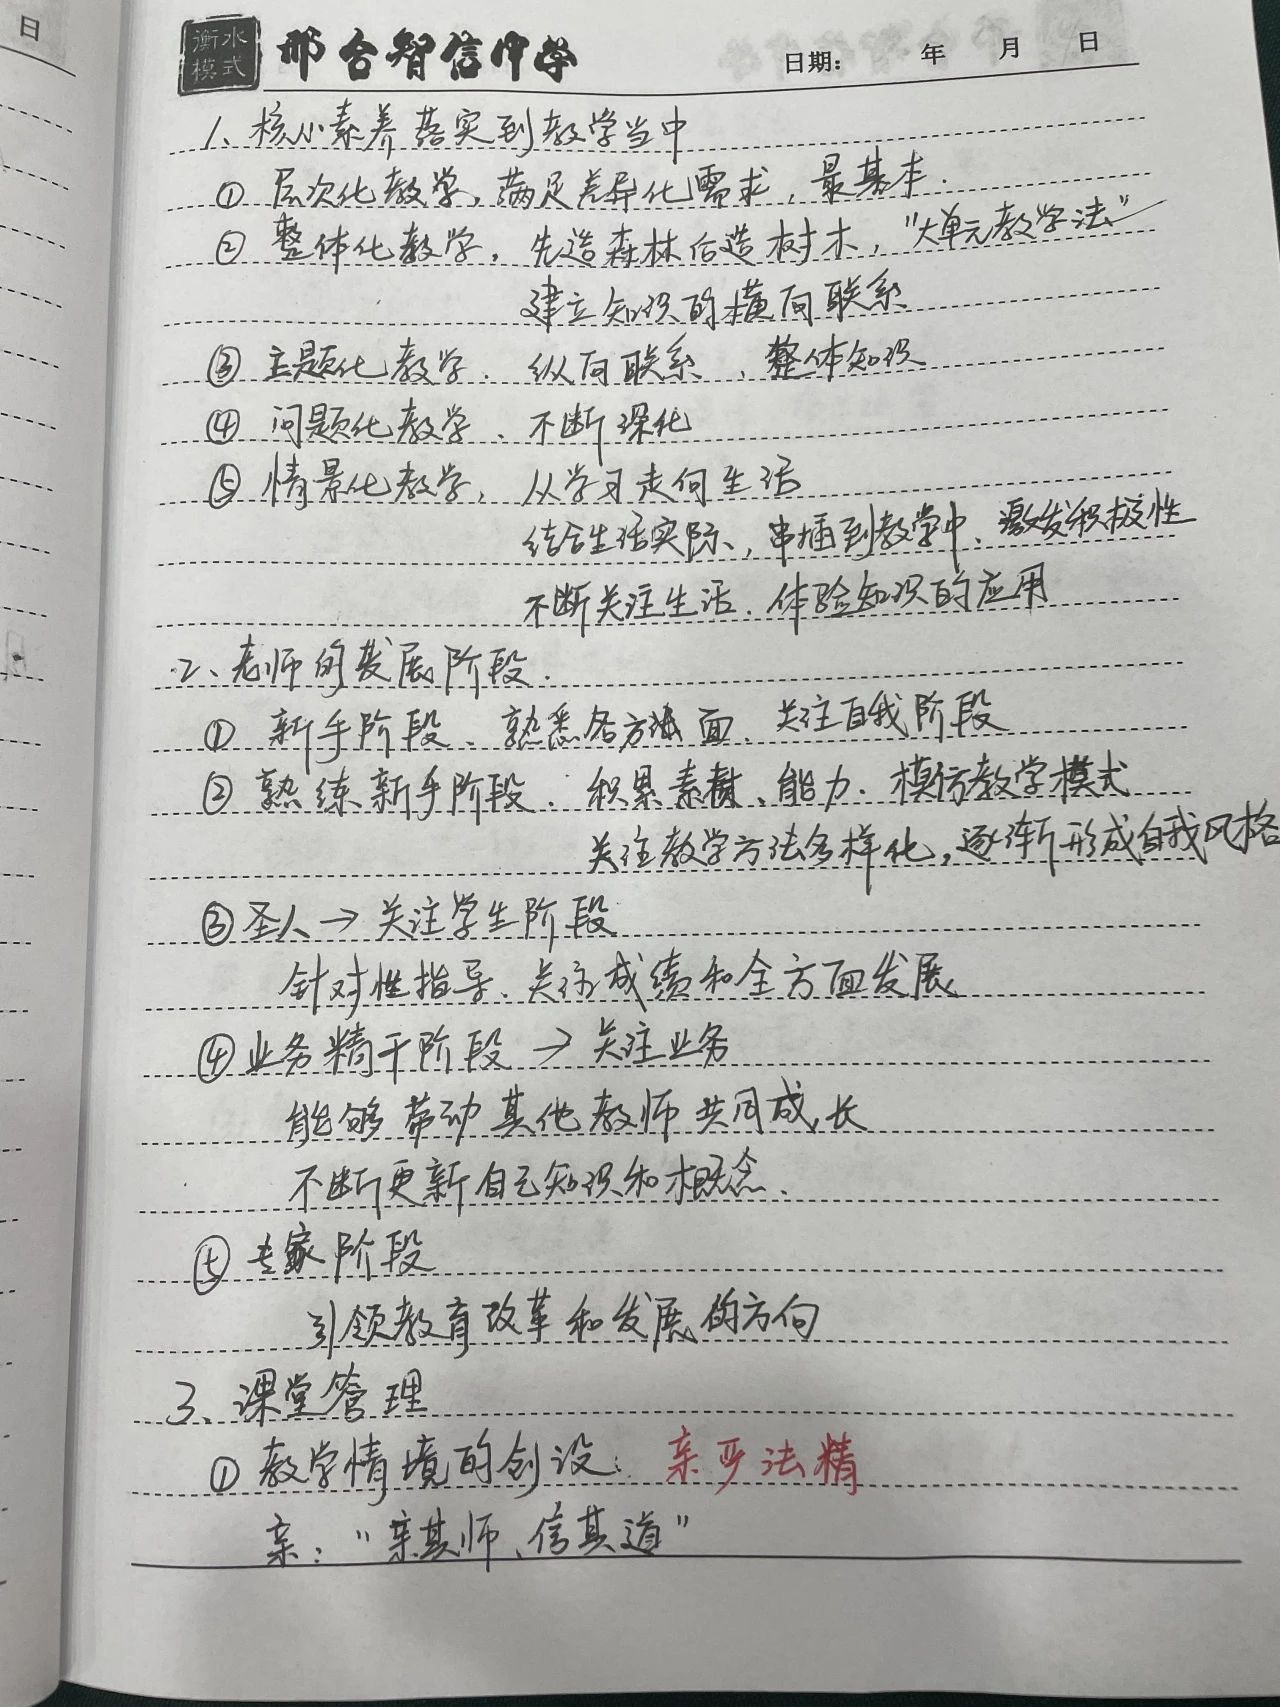 日
衡水
模式
邢台智信中学
日期： 年 月 日
1、核心素养落实到教学当中
① 层次化教学，满足差异化需求，最基本．
② 整体化教学，先造森林后造树木，“大单元教学法”
建立知识的横向联系
③ 主题化教学、纵向联系、整体知识
④ 问题化教学、不断深化
⑤ 情景化教学，从学习走向生活
结合生活实际，串插到教学中、激发积极性
不断关注生活、体验知识的应用
2、老师的发展阶段．
① 新手阶段、熟悉各方面、关注自我阶段
② 熟练新手阶段．积累素材、能力．模仿教学模式
关注教学方法多样化，逐渐形成自我风格
③ 圣人→关注学生阶段
针对性指导、关注成绩和全方面发展
④ 业务精干阶段→关注业务
能够带动其他教师共同成长
不断更新自己知识和概念、
⑤ 专家阶段
引领教育改革和发展的方向
3、课堂管理
① 教学情境的创设：亲严法精
亲：“亲其师、信其道”